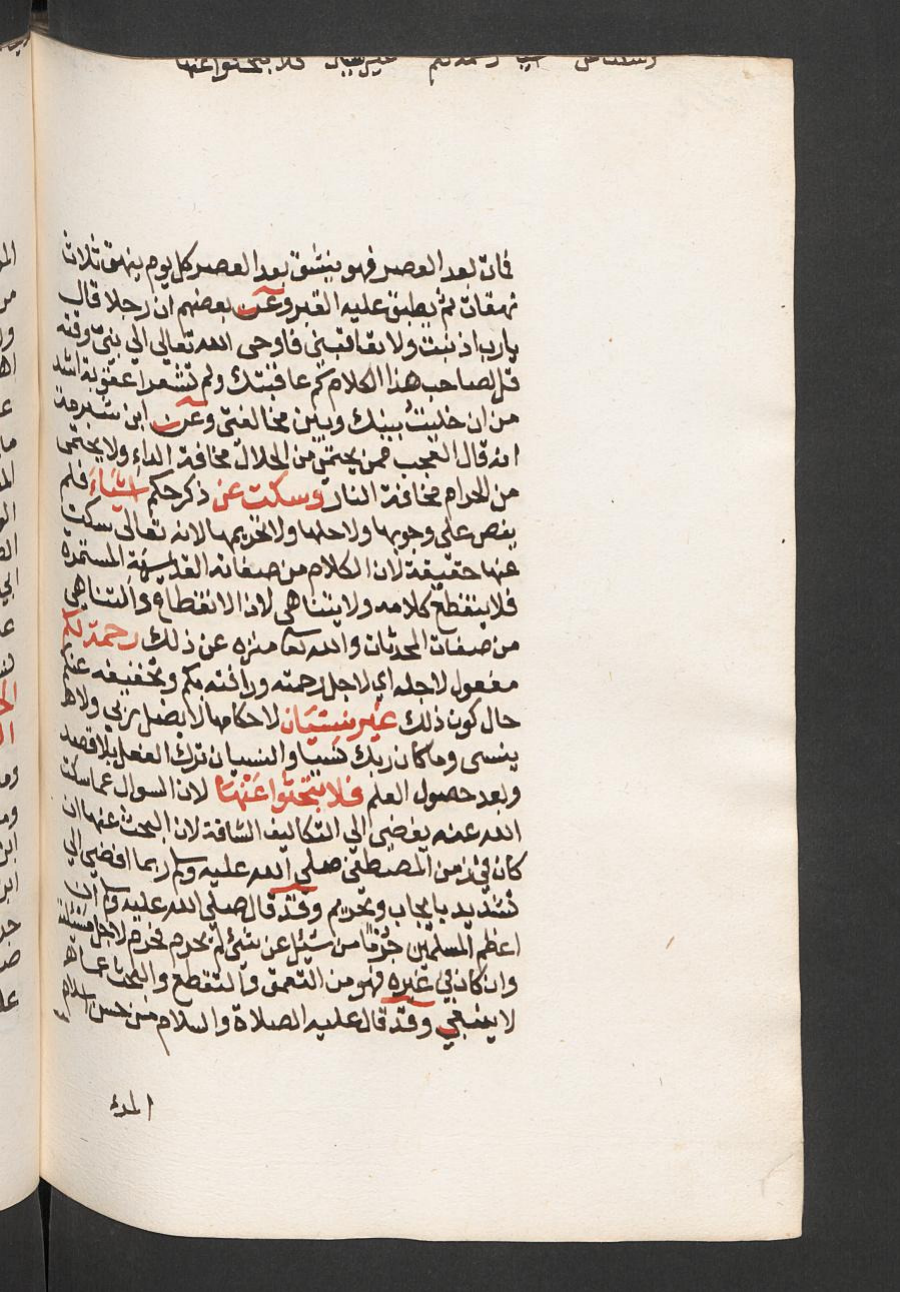 فمات بعد العصر فهو ينشق بعد العصر كل يوم ينهق ثلاث
نهقات ثم يطبق عليه القبر وعن بعضهم ان رجلا قال
يارب اذنبت ولا تعاقبني فاوحى الله تعالى الي نبي وقته
قل لصاحب هذا الكلام كم عاقبتك ولم تشعر اعقوبة اشد
من ان خليت بينك وبين مخالفتي وعن ابن شبرمة
انه قال العجب ممن يحتمي من الحلال مخافة الداء ولا يحتمي
من الحرام مخافة النار وسكت عن ذكر حكم اشياء فلم
ينص على وجوبها ولا حلها ولا تحريمها لا انه تعالى سكت
عنها حقيقة لان الكلام من صفاته القديمة المستمرة
فلا ينقطع كلامه ولا يتناهى لان الانقطاع والتناهي
من صفات المحدثات والله تعا منزه عن ذلك رحمة لكم
مفعول لاجله اي لاجل رحمته ورافته بكم وتخفيفه عنكم
حال كون ذلك غير نسيان لاحكامها لا يضل ربي ولا
ينسى وما كان ربك نسيا والنسيان ترك الفعل بلا قصد
وبعد حصول العلم فلا تبحثوا عنها لان السوال عما سكت
الله عنه يفضي الي التكاليف الشاقة لان البحث عنها ان
كان في زمن المصطفى صلي الله عليه وسلم ربما افضى الي
تشديد بايجاب وتحريم وقد قال صلي الله عليه وسلم ان
اعظم المسلمين جرما من سئل عن شئ لم يحرم فحرم لاجل مسئلته
وان كان في غيره فهو من التعمق والتقطع والبحث عما
لا يعني وقد قال عليه الصلاة والسلام من حسن اسلام
المرء